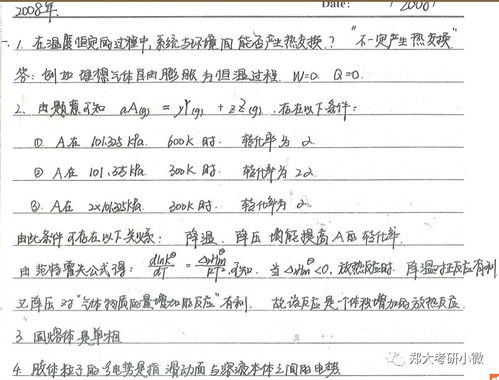 2008年. Date:
一、1. 在温度恒定的过程中,系统与环境间能否产生热交换? "不一定产生热交换"
答: 例如 理想气体自由膨胀 为恒温过程. W=0. Q=0.
2. 由题意可知 aA(g) = yY(g) + zZ(g). 存在以下条件:
① A在 101.325 kPa. 600K 时. 转化率为 α
② A在 101.325 kPa. 300K 时. 转化率为 2α.
③ A在 2×101.325 kPa. 300K 时. 转化率为 α
由此条件可存在以下关系: 降温、降压 均能提高A的转化率.
由范特霍夫公式得: dlnk^θ/dT = ΔrHm^θ/RT². 可知. 当 ΔrHm^θ<0, 放热反应时. 降温对正反应有利
又降压 对"气体物质的量增加的反应"有利. 故该反应是个体积增加的放热反应.
3. 固熔体是单相
4. 胶体粒子的ζ电势是指 滑动面与溶液本体之间的电势.
郑大考研小微